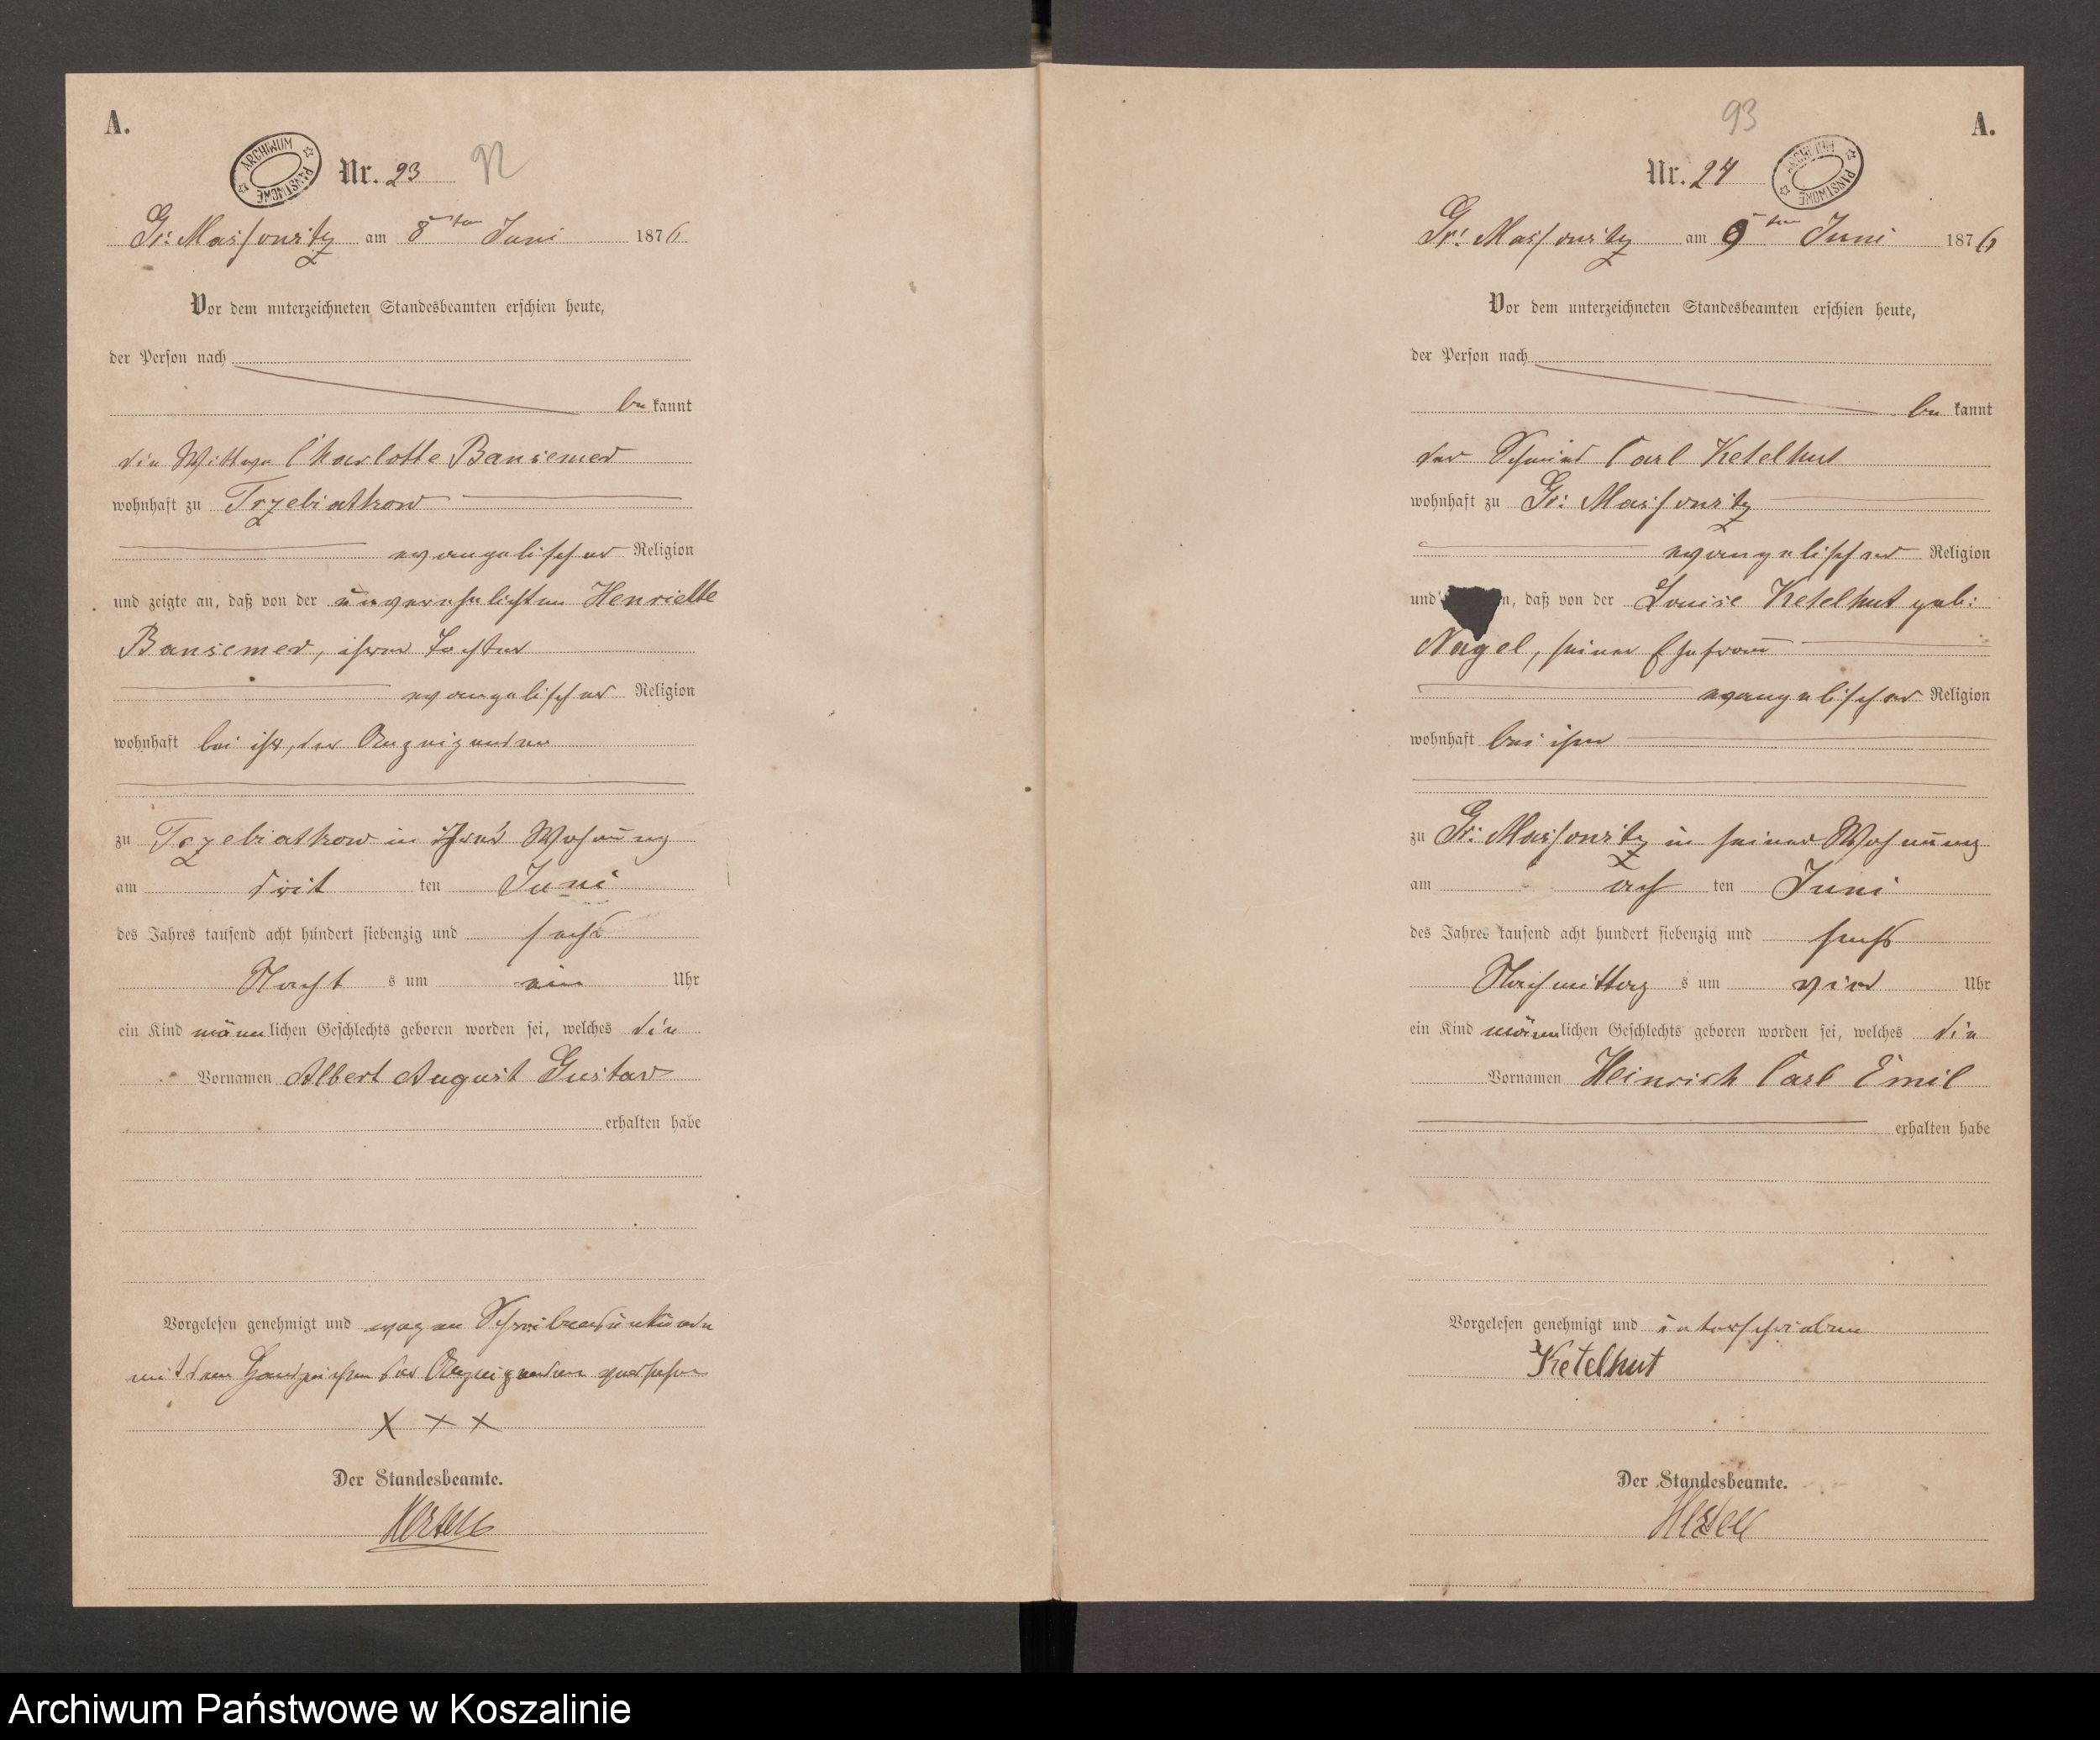 A.
ARCHIWUM PAŃSTWOWE
Nr. 23
92
Gr: Massowitz am 8ten Juni 1876
Vor dem unterzeichneten Standesbeamten erschien heute,
der Person nach
be kannt
die Wittwe Charlotte Bansemer
wohnhaft zu Trzebiatkow
evangelischer Religion
und zeigte an, daß von der unverehelichten Henriette
Bansemer, ihrer Tochter
evangelischer Religion
wohnhaft bei ihr, der Anzeigenden
zu Trzebiatkow in ihrer Wohnung
am drit ten Juni
des Jahres tausend acht hundert siebenzig und sechs
Nacht s um ein Uhr
ein Kind männlichen Geschlechts geboren worden sei, welches die
Vornamen Albert August Gustav
erhalten habe
Vorgelesen genehmigt und wegen Schreibensunkunde
mit dem Handzeichen der Anzeigenden versehen
X X X
Der Standesbeamte.
A.
93
Nr. 24
ARCHIWUM PAŃSTWOWE
Gr: Massowitz am 9ten Juni 1876
Vor dem unterzeichneten Standesbeamten erschien heute,
der Person nach
be kannt
der Schmied Carl Ketelhut
wohnhaft zu Gr: Massowitz
evangelischer Religion
und n, daß von der Louise Ketelhut geb:
Nagel, seiner Ehefrau
evangelischer Religion
wohnhaft bei ihm
zu Gr: Massowitz in seiner Wohnung
am ach ten Juni
des Jahres tausend acht hundert siebenzig und sechs
Nachmittag s um vier Uhr
ein Kind männlichen Geschlechts geboren worden sei, welches die
Vornamen Heinrich Carl Emil
erhalten habe
Vorgelesen genehmigt und unterschrieben
Ketelhut
Der Standesbeamte.
Archiwum Państwowe w Koszalinie